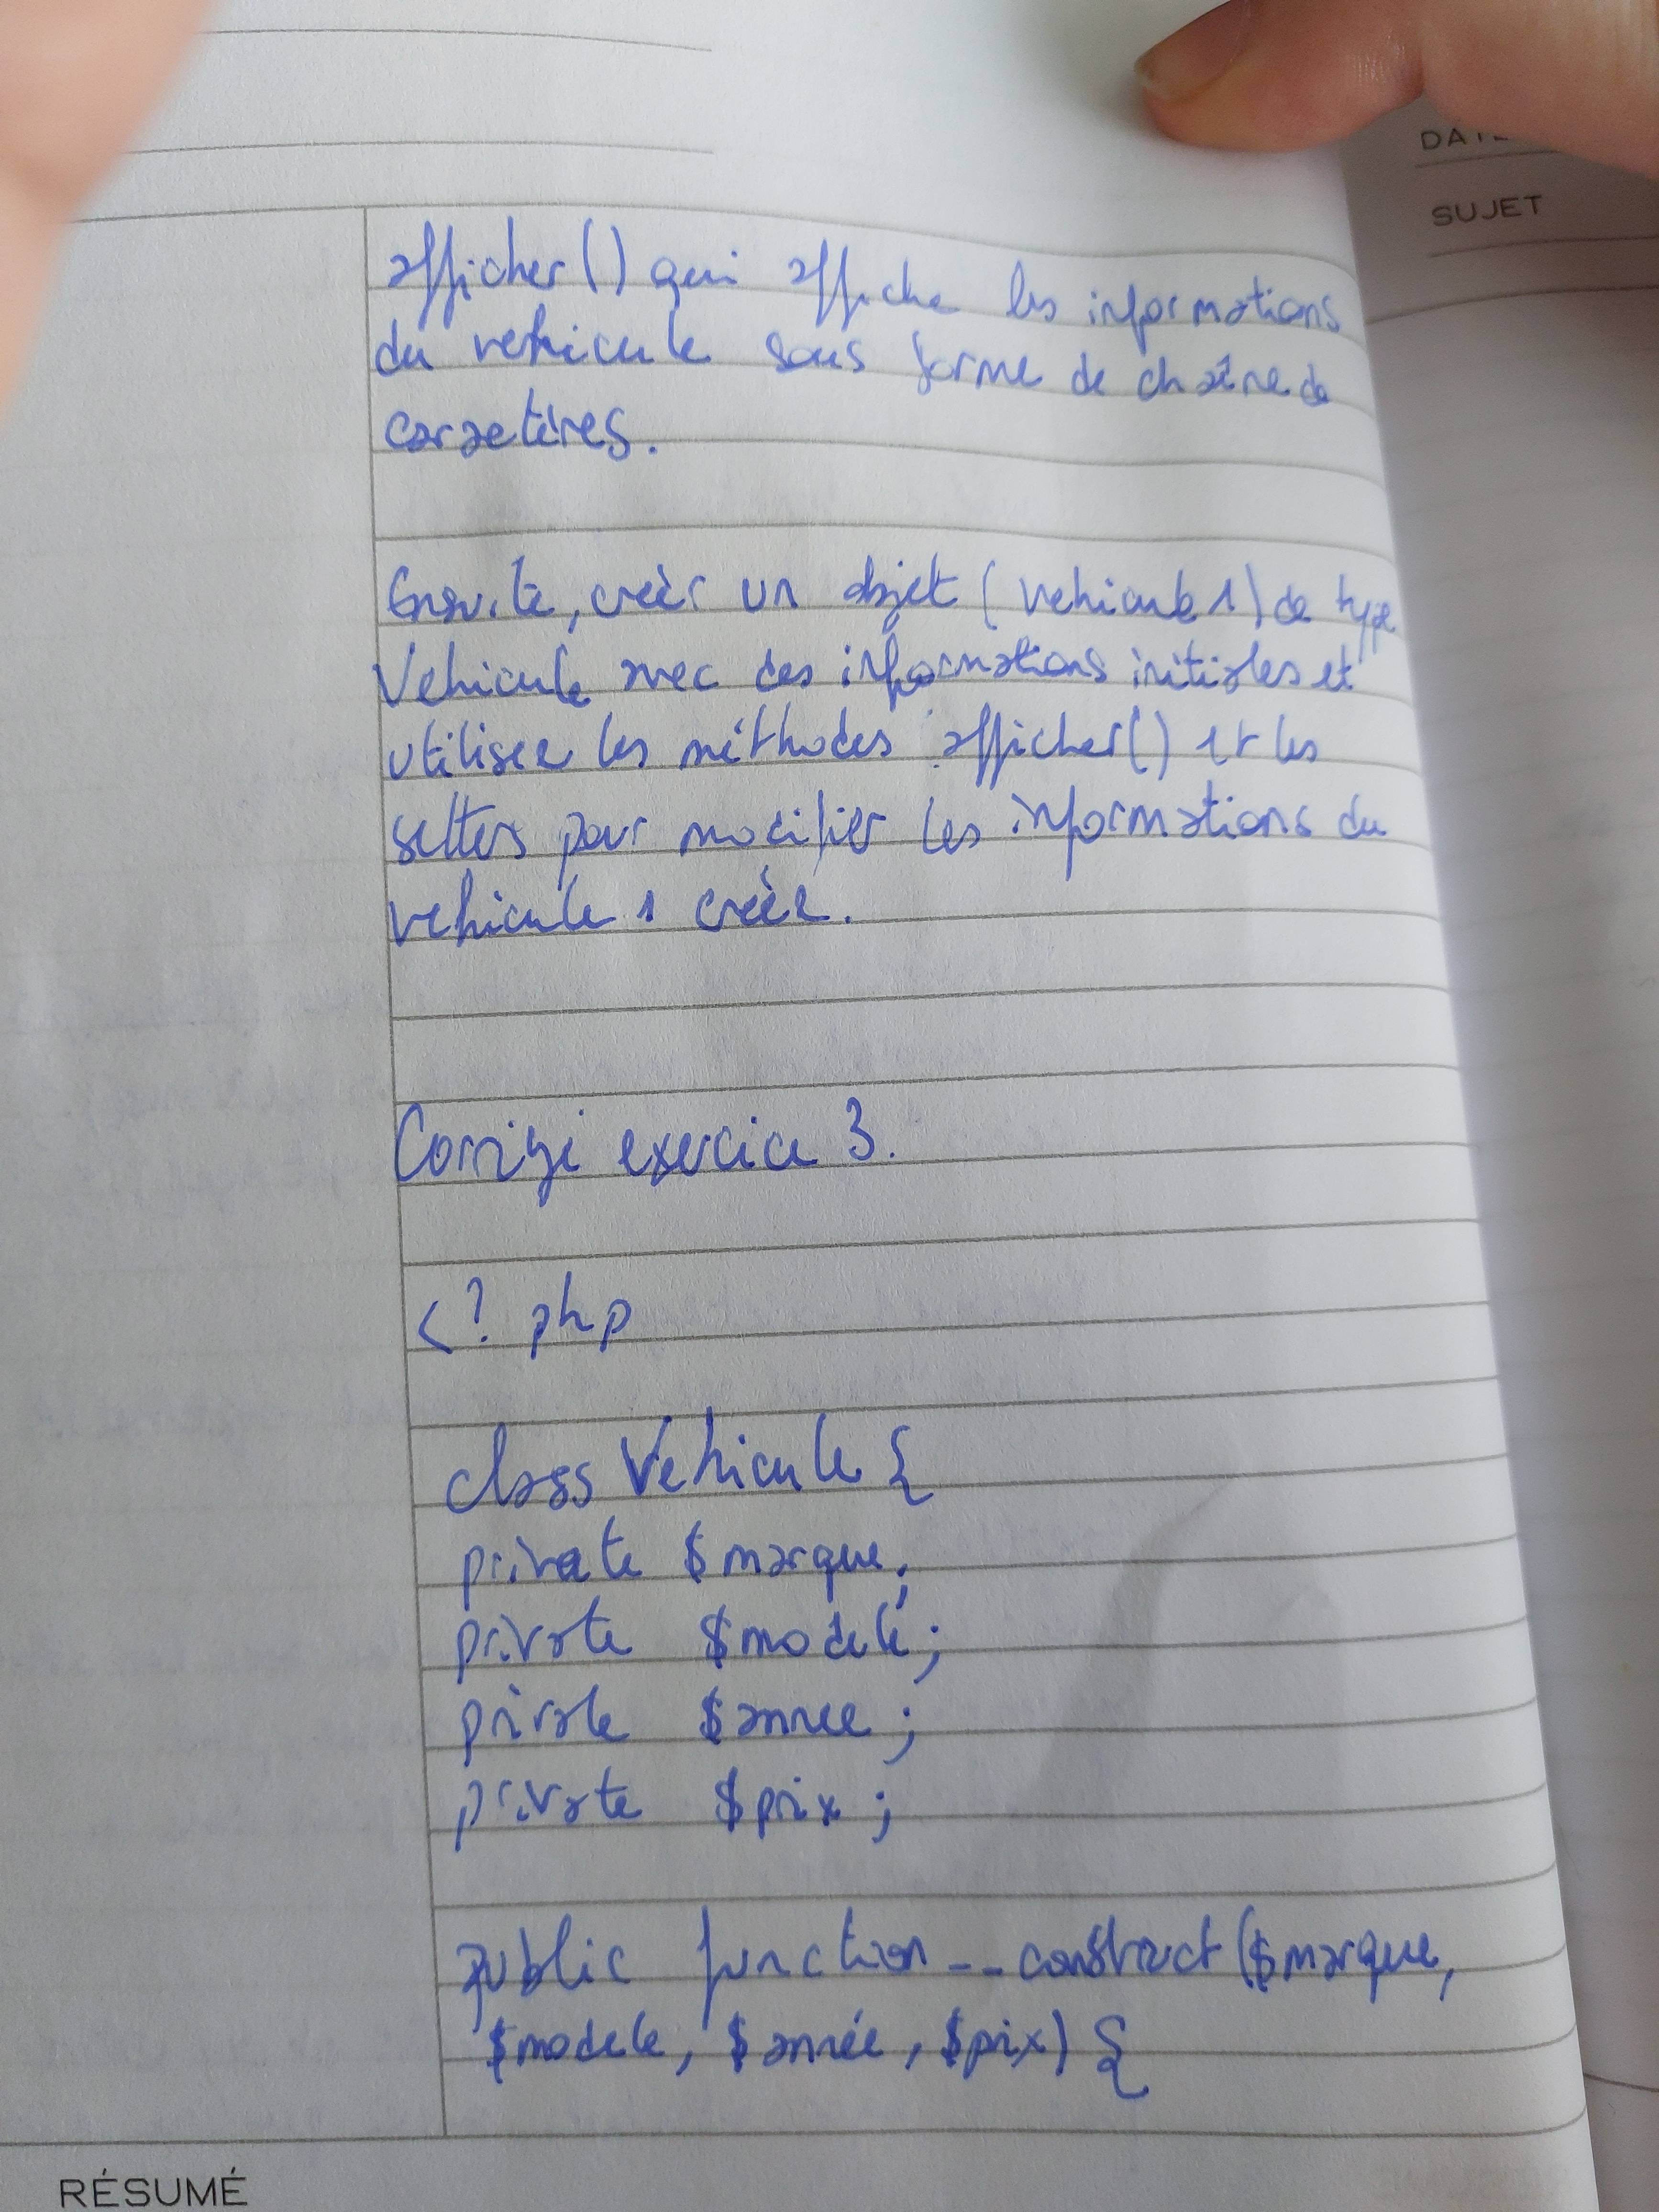 SUJET
afficher() qui affiche les informations
du vehicule sous forme de chaîne de
caractères.
Ensuite, créer un objet (vehicule 1) de type
Vehicule avec des informations initiales et
utiliser les méthodes afficher() et les
setters pour modifier les informations du
vehicule 1 créée.
Corrigé exercice 3.
<? php
class Vehicule {
private $marque;
private $modele;
private $annee;
private $prix;
public function __construct ($marque,
$modele, $année, $prix) {
RÉSUMÉ